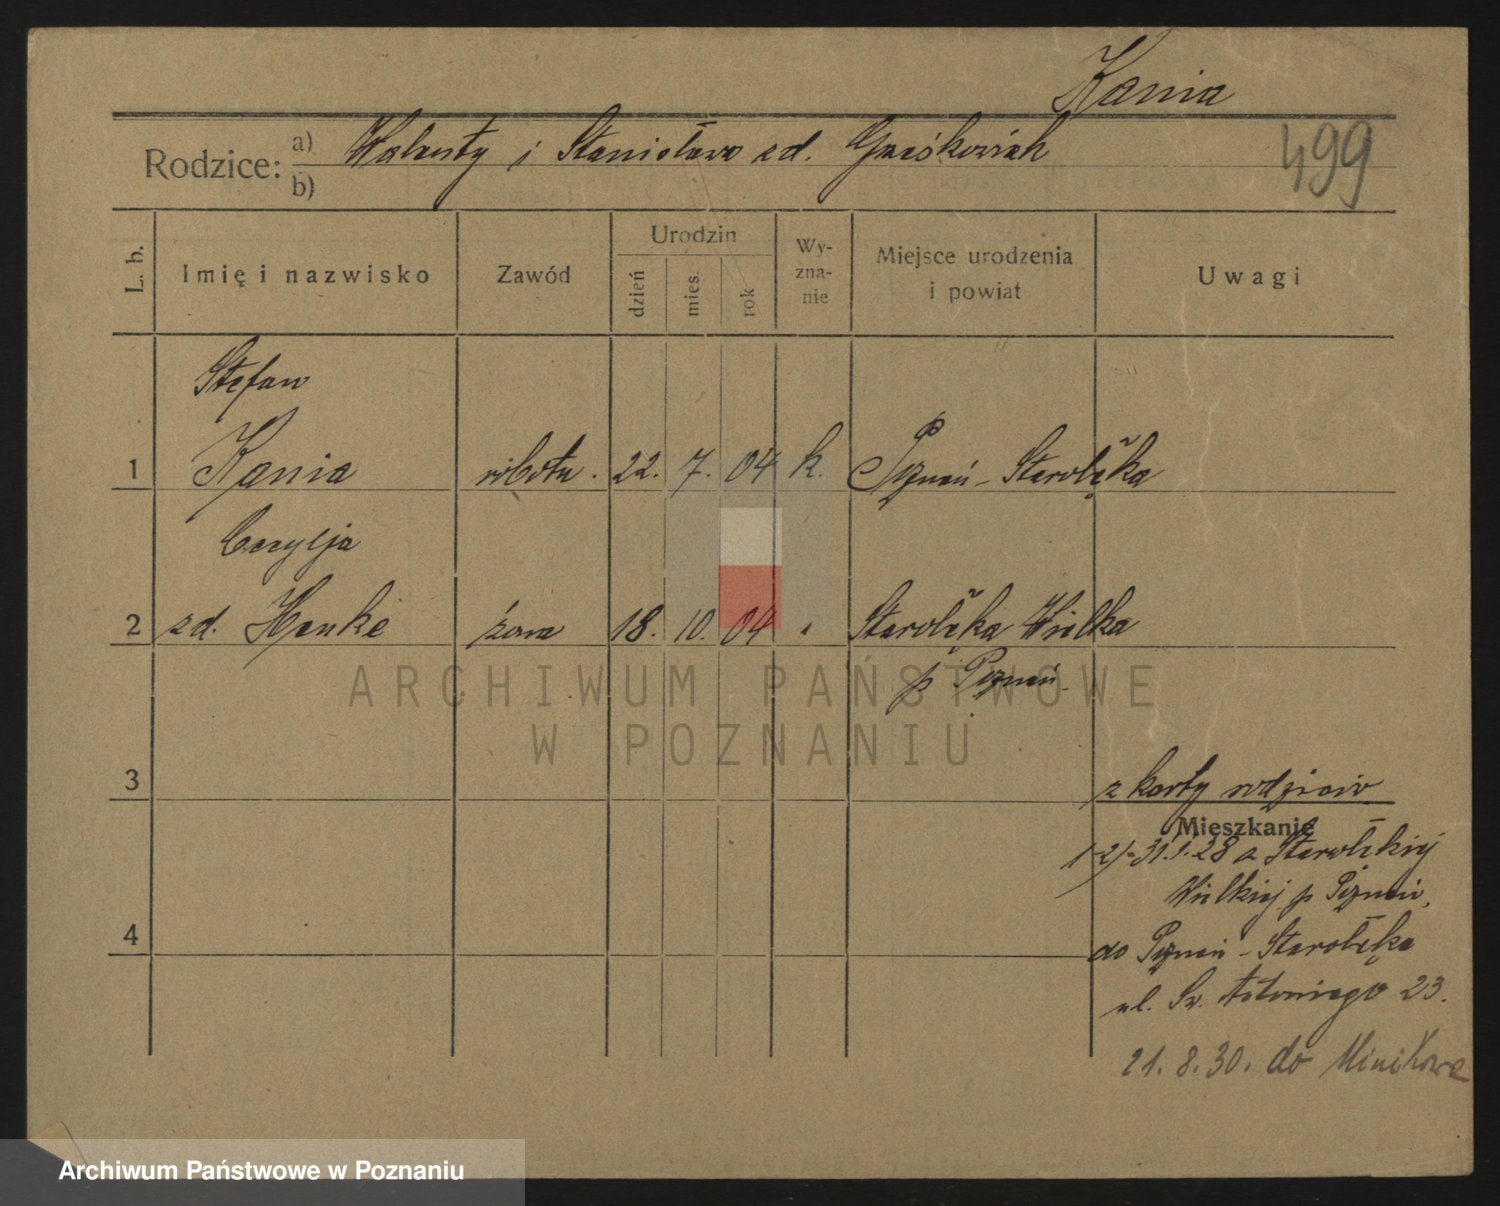 Kania
Rodzice: a) Walenty i Stanisława zd. Graśkowiak
b)
499
L. b.
Imię i nazwisko
Zawód
Urodzin
dzień
mies.
rok
Wy-
zna-
nie
Miejsce urodzenia
i powiat
Uwagi
Stefan
1 Kania robotn. 22. 7. 04 k. Poznań - Starołęka
Cecylja
2 zd. Henke żona 18. 10. 04 " Starołęka Wielka
p Poznań
ARCHIWUM PAŃSTWOWE
W POZNANIU
3
z karty rodziców
Mieszkanie
1-2)-31.1.28 z Starołękiej
Wielkiej p Poznań,
do Poznań - Starołęka
ul. Św. Antoniego 23.
4
21. 8. 30. do Minikowa
Archiwum Państwowe w Poznaniu